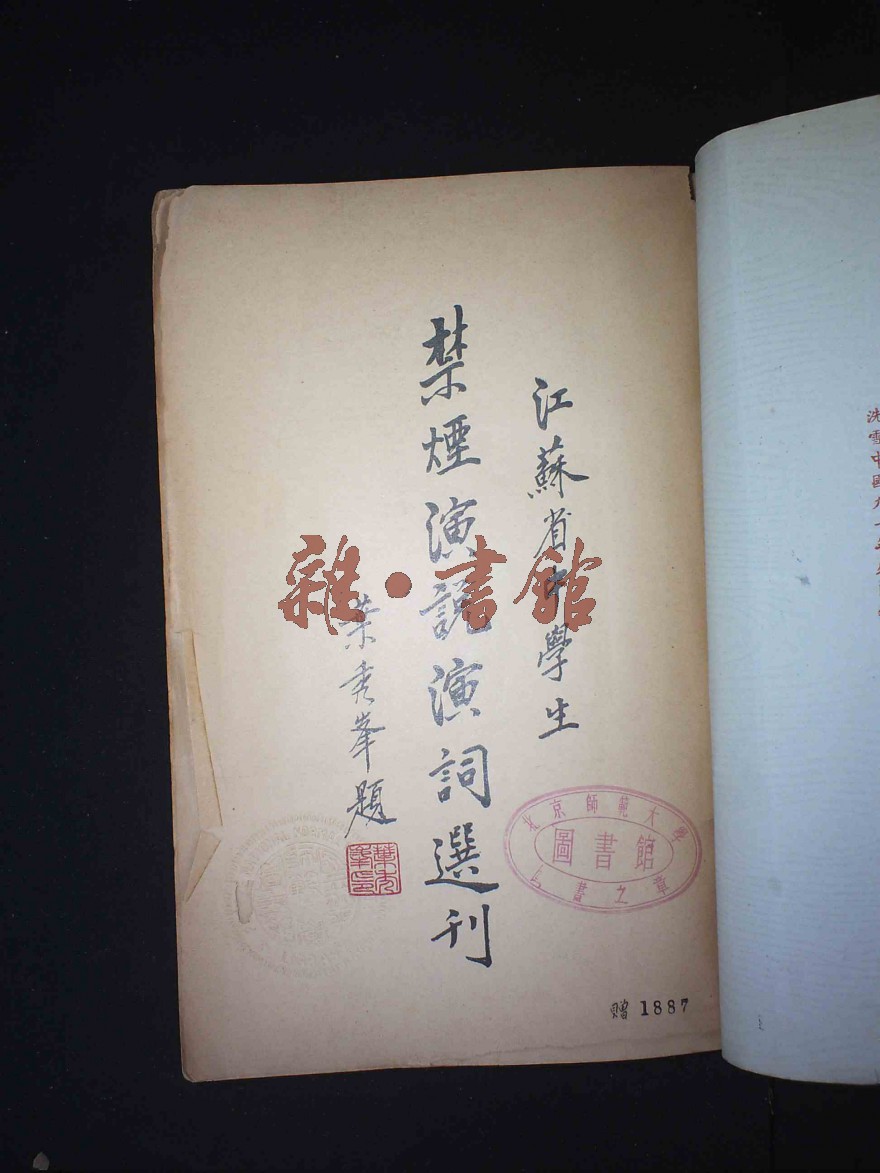 江蘇省中學生
禁煙演說演詞選刊
葉秀峯題
葉秀峯印
雜·書館
北京師範大學
圖書館
之章
贈 1887
洗雪中國九十